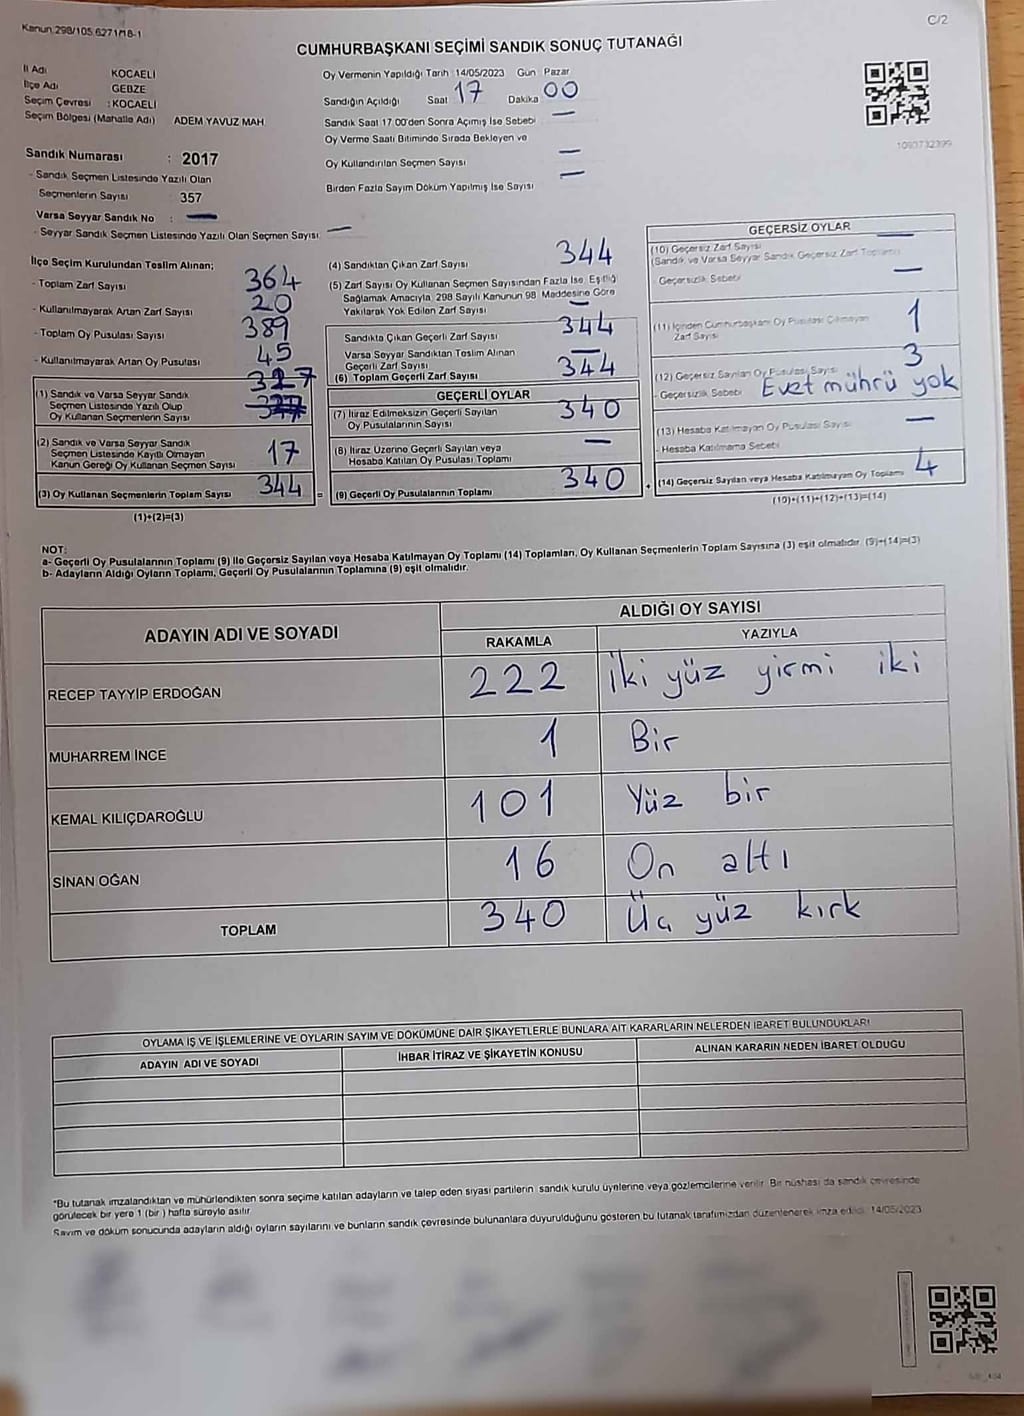 Kanun 298/105.6271/18-1
C/2
CUMHURBAŞKANI SEÇİMİ SANDIK SONUÇ TUTANAĞI
İl Adı KOCAELİ
İlçe Adı GEBZE
Seçim Çevresi : KOCAELİ
Seçim Bölgesi (Mahalle Adı) ADEM YAVUZ MAH
Sandık Numarası : 2017
- Sandık Seçmen Listesinde Yazılı Olan
Seçmenlerin Sayısı 357
Varsa Seyyar Sandık No : —
- Seyyar Sandık Seçmen Listesinde Yazılı Olan Seçmen Sayısı —
Oy Vermenin Yapıldığı Tarih 14/05/2023 Gün Pazar
Sandığın Açıldığı Saat 17 Dakika 00
Sandık Saat 17.00'den Sonra Açımış İse Sebebi —
Oy Verme Saati Bitiminde Sırada Bekleyen ve
Oy Kullandırılan Seçmen Sayısı —
Birden Fazla Sayım Döküm Yapılmış İse Sayısı —
1090732399
İlçe Seçim Kurulundan Teslim Alınan;
- Toplam Zarf Sayısı 364
- Kullanılmayarak Artan Zarf Sayısı 20
- Toplam Oy Pusulası Sayısı 389
- Kullanılmayarak Artan Oy Pusulası 45
327
(1) Sandık ve Varsa Seyyar Sandık
Seçmen Listesinde Yazılı Olup
Oy Kullanan Seçmenlerin Sayısı
(2) Sandık ve Varsa Seyyar Sandık
Seçmen Listesinde Kayıtlı Olmayan
Kanun Gereği Oy Kullanan Seçmen Sayısı 17
(3) Oy Kullanan Seçmenlerin Toplam Sayısı 344
(1)+(2)=(3)
(4) Sandıktan Çıkan Zarf Sayısı 344
(5) Zarf Sayısı Oy Kullanan Seçmen Sayısından Fazla İse, Eşitliği
Sağlamak Amacıyla, 298 Sayılı Kanunun 98. Maddesine Göre
Yakılarak Yok Edilen Zarf Sayısı —
Sandıkta Çıkan Geçerli Zarf Sayısı 344
Varsa Seyyar Sandıktan Teslim Alınan
Geçerli Zarf Sayısı —
(6) Toplam Geçerli Zarf Sayısı 344
GEÇERLİ OYLAR
(7) İtiraz Edilmeksizin Geçerli Sayılan
Oy Pusulalarının Sayısı 340
(8) İtiraz Üzerine Geçerli Sayılan veya
Hesaba Katılan Oy Pusulası Toplamı —
= (9) Geçerli Oy Pusulalarının Toplamı 340
GEÇERSİZ OYLAR
(10) Geçersiz Zarf Sayısı —
(Sandık ve Varsa Seyyar Sandık Geçersiz Zarf Toplamı)
Geçersizlik Sebebi —
(11) İçinden Cumhurbaşkanı Oy Pusulası Çıkmayan
Zarf Sayısı 1
(12) Geçersiz Sayılan Oy Pusulası Sayısı 3
- Geçersizlik Sebebi Evet mührü yok
(13) Hesaba Katılmayan Oy Pusulası Sayısı —
- Hesaba Katılmama Sebebi
+ (14) Geçersiz Sayılan veya Hesaba Katılmayan Oy Toplamı 4
(10)+(11)+(12)+(13)=(14)
NOT:
a- Geçerli Oy Pusulalarının Toplamı (9) ile Geçersiz Sayılan veya Hesaba Katılmayan Oy Toplamı (14) Toplamları, Oy Kullanan Seçmenlerin Toplam Sayısına (3) eşit olmalıdır. (9)+(14)=(3)
b- Adayların Aldığı Oyların Toplamı, Geçerli Oy Pusulalarının Toplamına (9) eşit olmalıdır.
ADAYIN ADI VE SOYADI ALDIĞI OY SAYISI
RAKAMLA YAZIYLA
RECEP TAYYİP ERDOĞAN 222 İki yüz yirmi iki
MUHARREM İNCE 1 Bir
KEMAL KILIÇDAROĞLU 101 Yüz bir
SİNAN OĞAN 16 On altı
TOPLAM 340 Üç yüz kırk
OYLAMA İŞ VE İŞLEMLERİNE VE OYLARIN SAYIM VE DÖKÜMÜNE DAİR ŞİKAYETLERLE BUNLARA AİT KARARLARIN NELERDEN İBARET BULUNDUKLARI
ADAYIN ADI VE SOYADI İHBAR İTİRAZ VE ŞİKAYETİN KONUSU ALINAN KARARIN NEDEN İBARET OLDUĞU
*Bu tutanak imzalandıktan ve mühürlendikten sonra seçime katılan adayların ve talep eden siyasi partilerin sandık kurulu üyelerine veya gözlemcilerine verilir. Bir nüshası da sandık çevresinde
görülecek bir yere 1 (bir) hafta süreyle asılır.
Sayım ve döküm sonucunda adayların aldığı oyların sayılarını ve bunların sandık çevresinde bulunanlara duyurulduğunu gösteren bu tutanak tarafımızdan düzenlenerek imza edildi. 14/05/2023